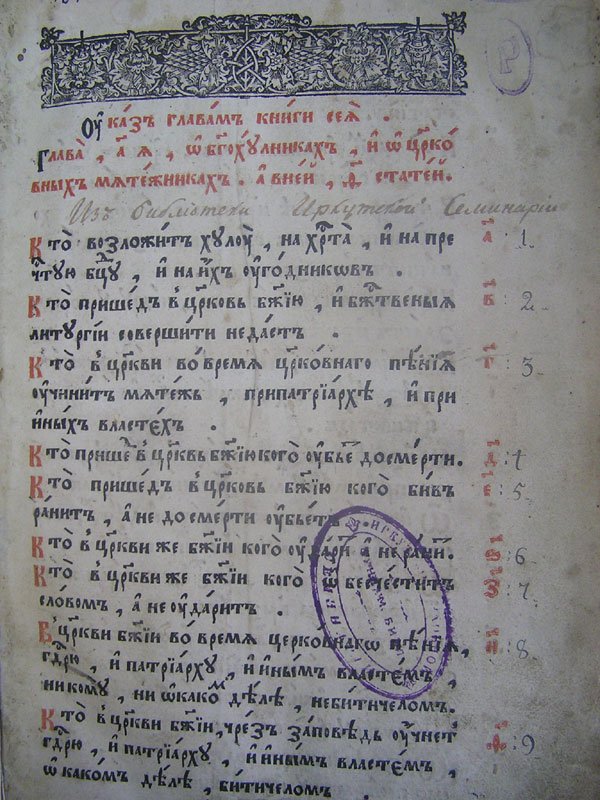 Оу҆ка́зъ главамъ книги сеѧ̀ .
Глава̀ , а҃ ѧ , ѡ бг҃охꙋлникахъ , и ѡ цр҃ко́
вныхъ мѧте́жникахъ . а̀ вней , д҃ статей .
Изъ библiотеки Иркутской Семинарiи
Кто̀ возложи́тъ хꙋлоу̀ , на хрⷭ҇та̀ , и҆ на пре
чⷭ҇тꙋю бцⷣꙋ , и҆ на и҆́хъ оу҆го́дникѡвъ . а҃ 1.
Кто̀ прише́дъ в цр҃ковь бж҃їю , и҆ бжⷭ҇твеныѧ в҃ : 2
литꙋргїи соверши́ти неда́стъ .
Кто̀ в цр҃кви во́ времѧ цр҃ко́внаго пѣ́нїѧ г҃ : 3
оу҆чини́тъ мѧте́жь , припатрїа́рхѣ , и҆ при
и҆ны́хъ власте́хъ .
Кто̀ прише́ⷣ в цр҃квь бж҃їю кого̀ оу҆бье́ⷮ досме́рти . д҃ : 4
Кто̀ прише́дъ в цр҃ковь бж҃їю кого̀ би́въ е҃ : 5
ра́нитъ , а҆ не до сме́рти оу҆бье́тъ .
Кто̀ в цр҃кви же бж҃їи кого̀ оу҆да́риⷮ а҆ не ра́ниⷮ . ѕ҃ : 6
Кто̀ в цр҃кви же бж҃їи кого̀ ѡбесче́ститъ з҃ : 7
сло́вомъ , а҆ не оу҆да́ритъ .
В цр҃кви бж҃їи во́ времѧ церковнагѡ пѣ́нїѧ , и҃ : 8
гдⷭ҇рю , и҆ патрїа́рхꙋ , и҆ и҆ны́мъ власте́мъ ,
никомꙋ , ни ѡ како́мъ дѣ́лѣ , небитичеломъ .
Кто̀ в цр҃кви бж҃їи , чре́зъ за́повѣдь оу҆чнетъ ѳ҃ : 9
гдⷭ҇рю , и҆ патрїа́рхꙋ , и҆ и҆ны́мъ власте́мъ ,
ѡ како́мъ дѣ́лѣ , би́тичеломъ .